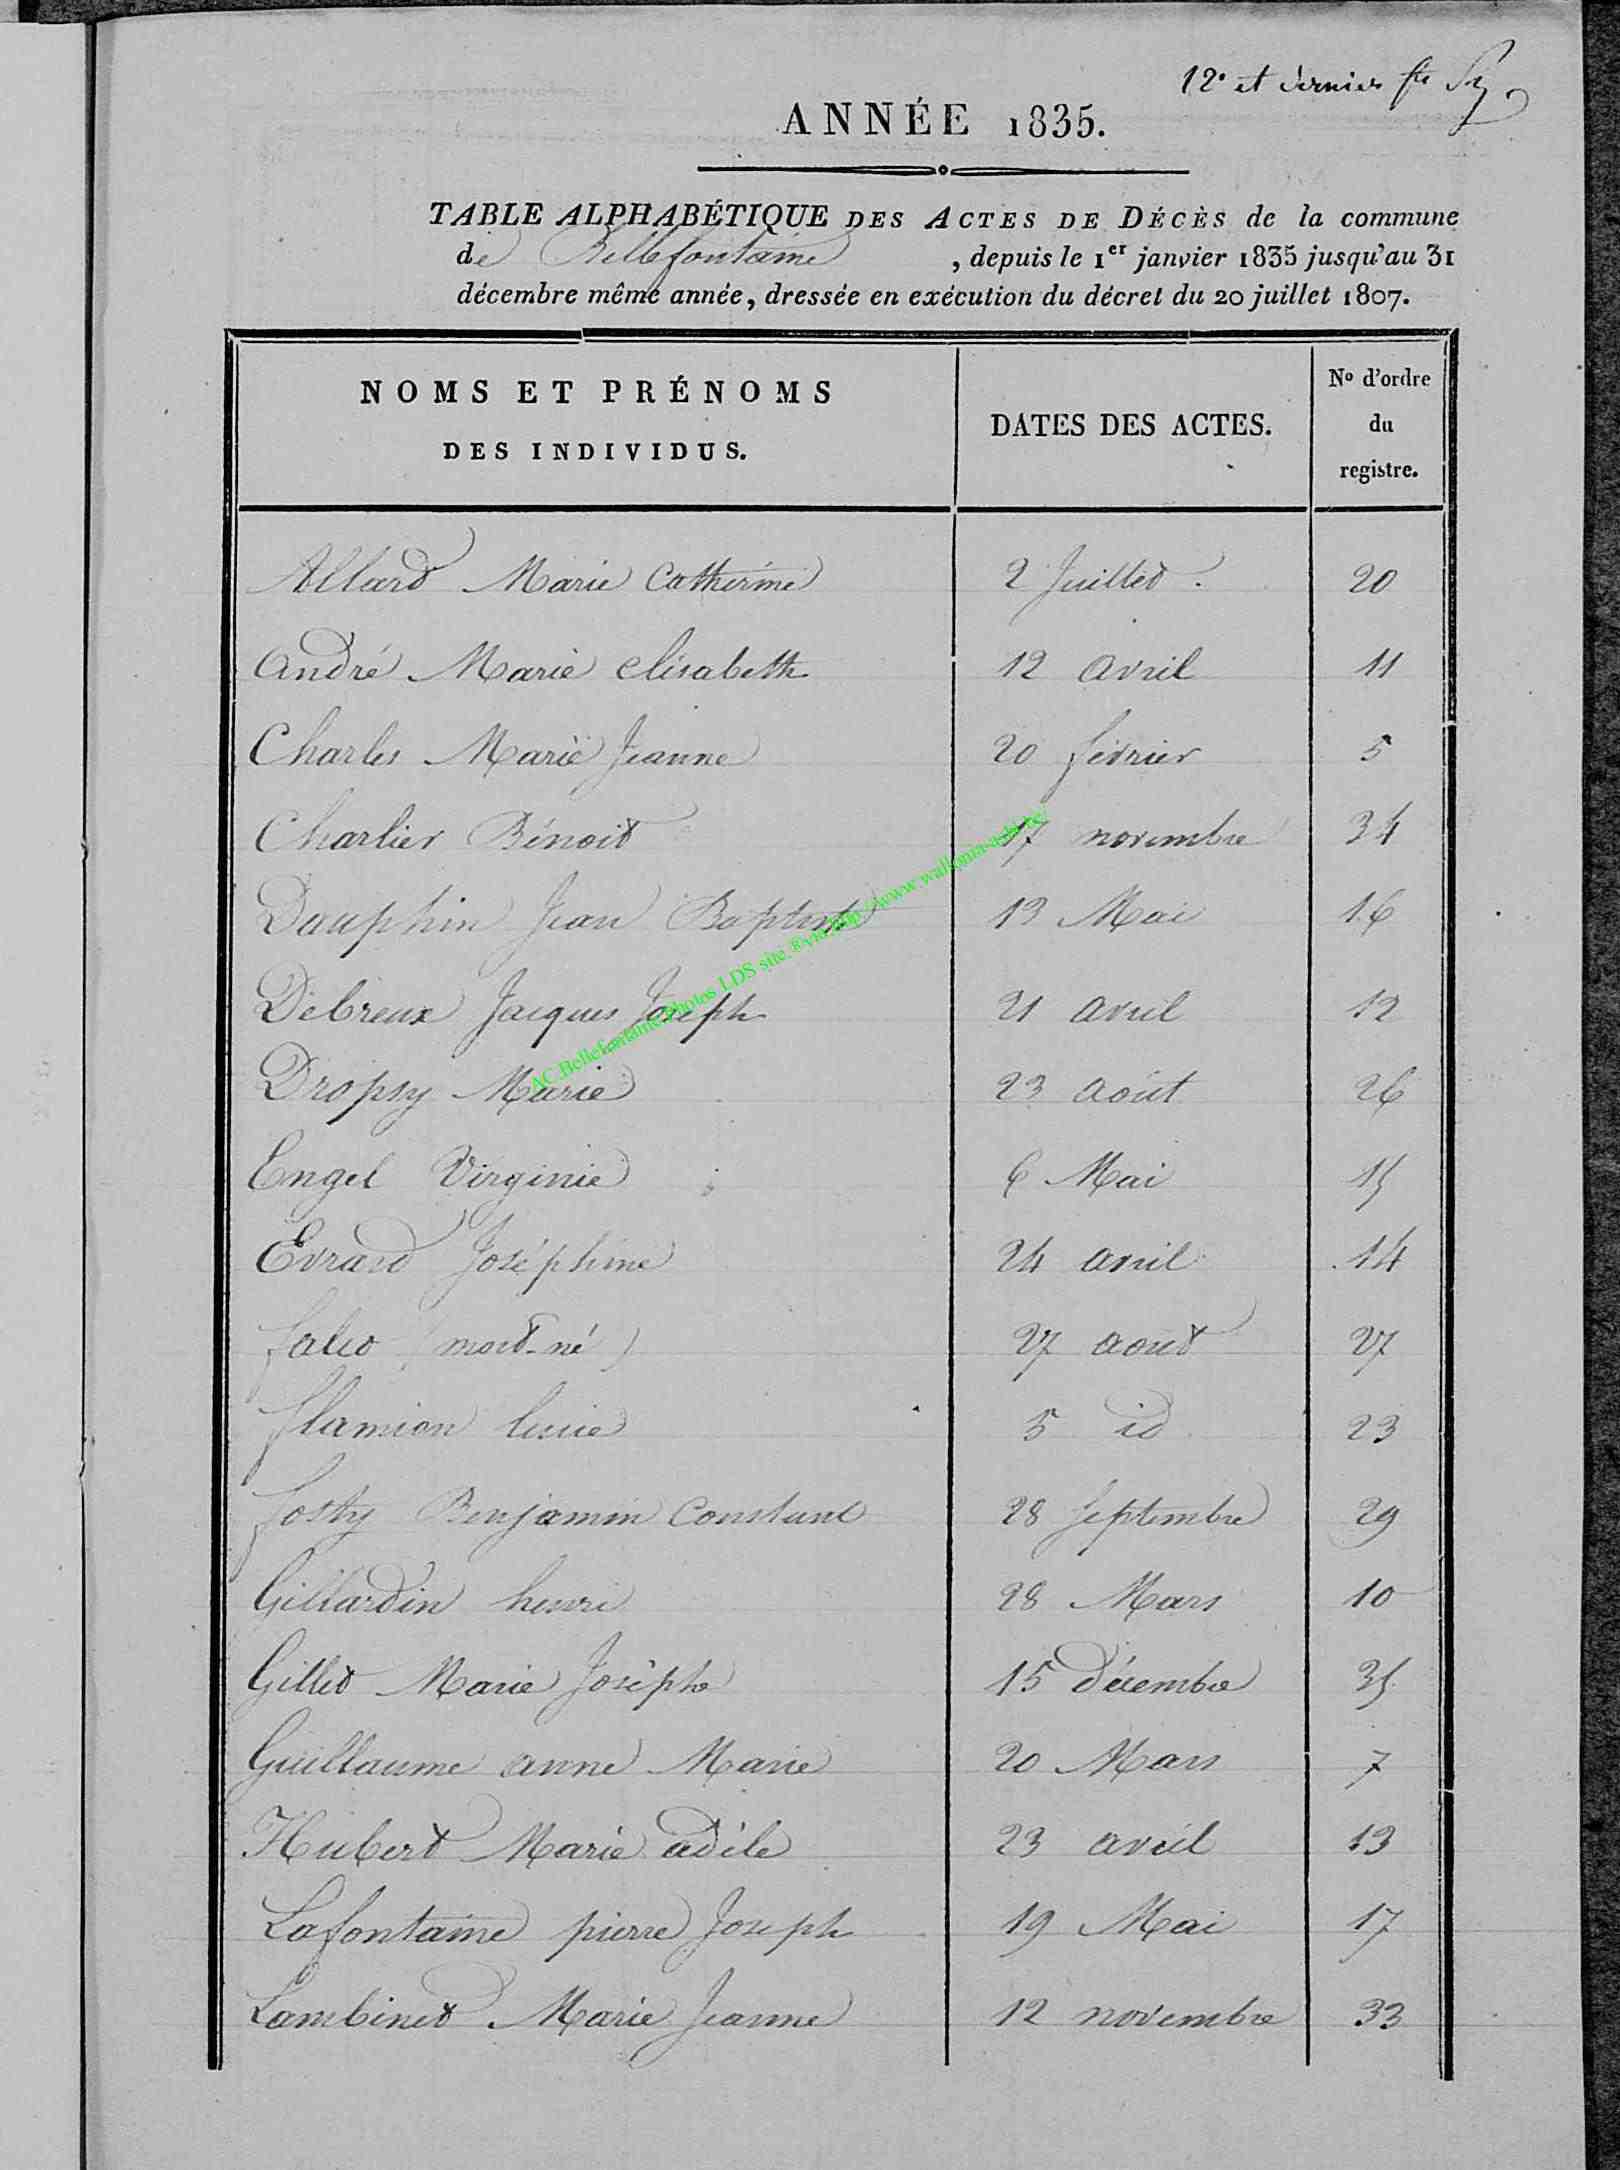 12e et dernier fte
ANNÉE 1835.
TABLE ALPHABÉTIQUE DES ACTES DE DÉCÈS de la commune
de Bellefontaine, depuis le 1er janvier 1835 jusqu'au 31
décembre même année, dressée en exécution du décret du 20 juillet 1807.
NOMS ET PRÉNOMS DES INDIVIDUS. DATES DES ACTES. No d'ordre du registre.
Allard Marie Catherine 2 Juillet. 20
André Marie elisabeth 12 avril 11
Charles Marie Jeanne 20 février 5
Charlier Bénoit 17 novembre 34
Dauphin Jean Baptiste 13 Mai 16
Debreux Jacques Joseph 21 avril 12
Dropsy Marie 23 août 26
Engel Virginie 6 Mai 15
Evrard Joséphine 24 avril 14
(mort-né) 27 août 27
flamion 5 id 23
fosty Benjamin Constant 28 Septembre 29
Gillardin henri 28 Mars 10
Gillet Marie Josèphe 15 décembre 35
Guillaume anne Marie 20 Mars 7
Hubert Marie adèle 23 avril 13
Lafontaine pierre Joseph 19 Mai 17
Lambinet Marie Jeanne 12 novembre 33
AC Bellefontaine Photos LDS site